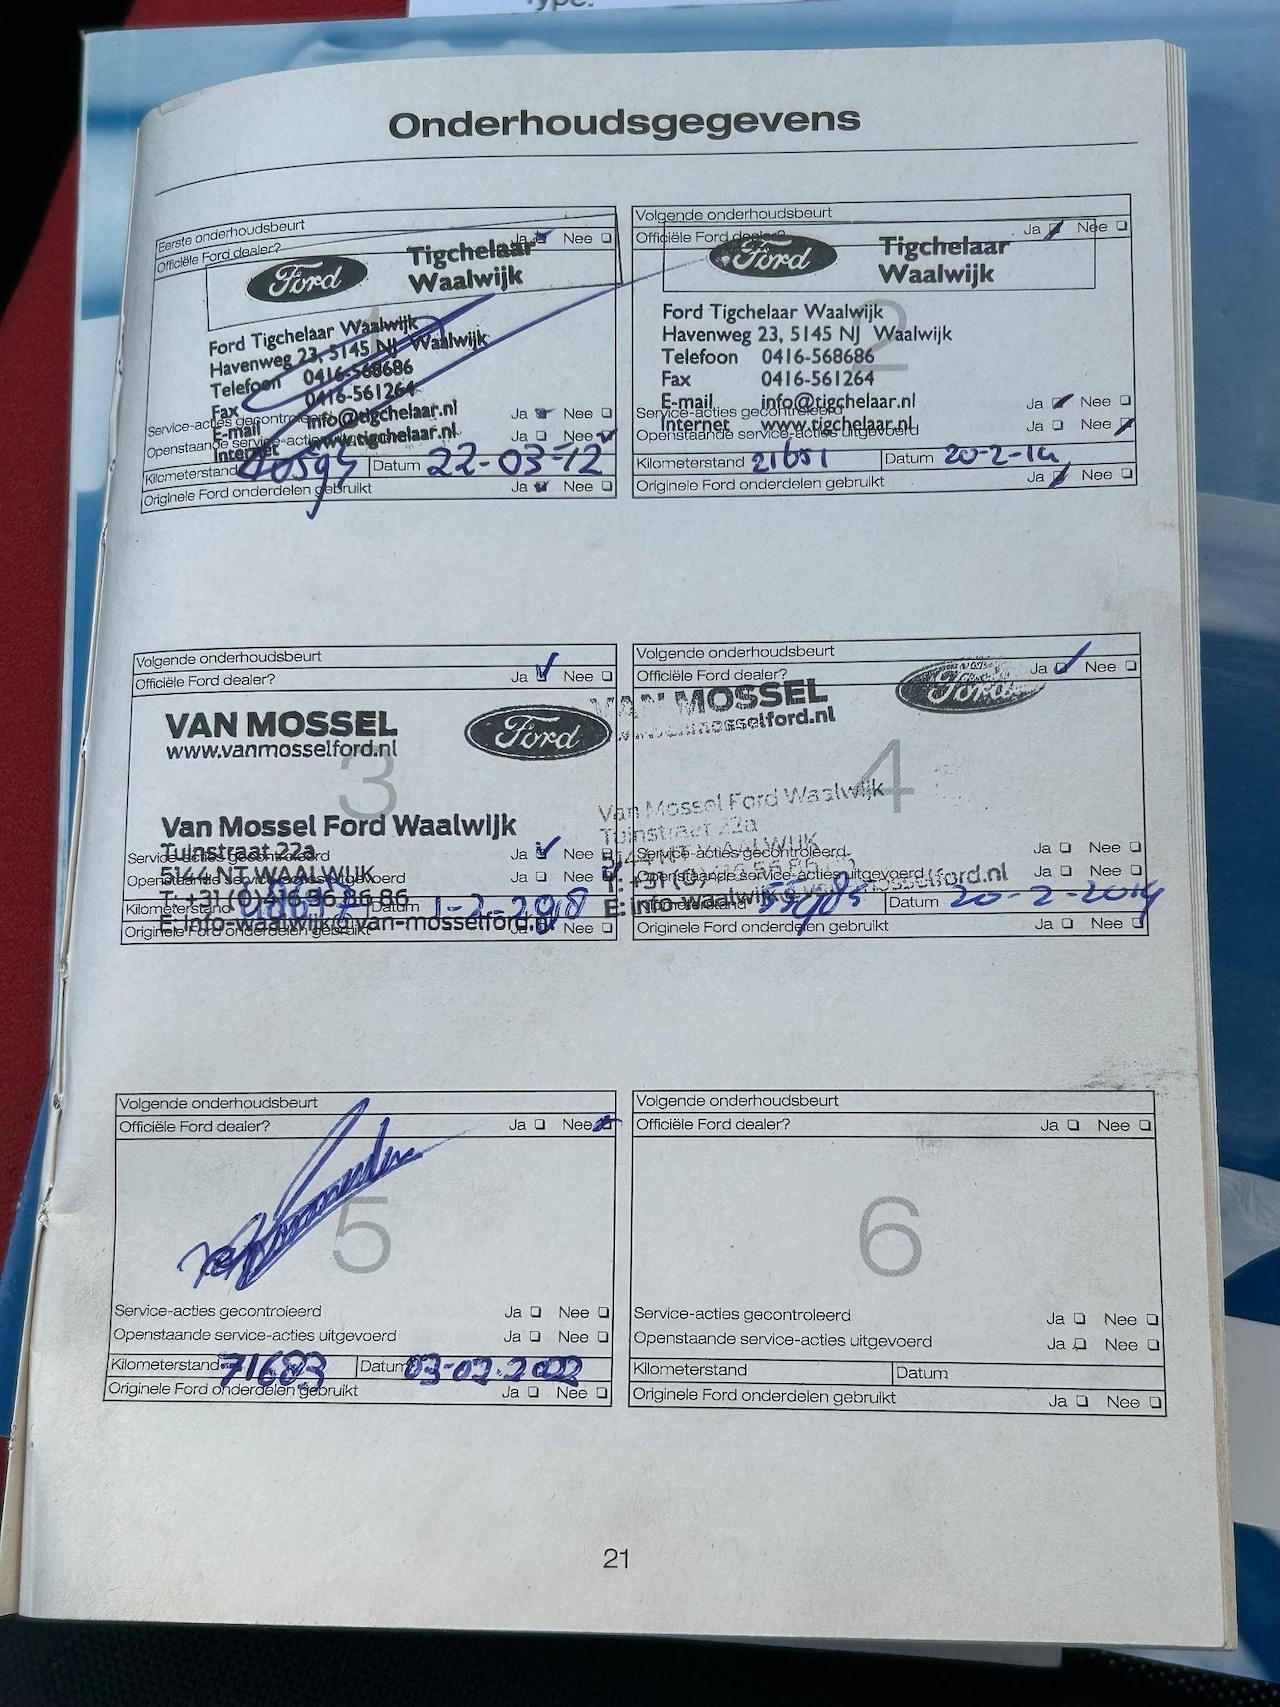 Type:
Onderhoudsgegevens
Eerste onderhoudsbeurt
Officiële Ford dealer? Ja Nee
Ford Tigchelaar
Waalwijk
Ford Tigchelaar Waalwijk
Havenweg 23, 5145 NJ Waalwijk
Telefoon 0416-568686
Fax 0416-561264
E-mail info@tigchelaar.nl
Internet www.tigchelaar.nl
1
Service-acties gecontroleerd Ja Nee
Openstaande service-acties Ja Nee
Kilometerstand Datum 22-03-12
Originele Ford onderdelen gebruikt Ja Nee
Volgende onderhoudsbeurt
Officiële Ford dealer? Ja Nee
Ford Tigchelaar
Waalwijk
Ford Tigchelaar Waalwijk
Havenweg 23, 5145 NJ Waalwijk
2
Telefoon 0416-568686
Fax 0416-561264
E-mail info@tigchelaar.nl
Service-acties gecontroleerd Ja Nee
Internet www.tigchelaar.nl
Openstaande service-acties uitgevoerd Ja Nee
Kilometerstand 21651 Datum 20-2-14
Originele Ford onderdelen gebruikt Ja Nee
Volgende onderhoudsbeurt
Officiële Ford dealer? Ja Nee
VAN MOSSEL Ford
www.vanmosselford.nl
3
Van Mossel Ford Waalwijk
Tuinstraat 22a
Service-acties gecontroleerd Ja Nee
5144 NT WAALWIJK
Openstaande service-acties uitgevoerd Ja Nee
T: +31 (0)416 56 86 86
Kilometerstand Datum
E: info-waalwijk@van-mosselford.nl
Originele Ford onderdelen gebruikt Ja Nee
Volgende onderhoudsbeurt
Officiële Ford dealer? Ja Nee
VAN MOSSEL Ford
www.vanmosselford.nl
4
Van Mossel Ford Waalwijk
Tuinstraat 22a
5144 NT WAALWIJK
Service-acties gecontroleerd Ja Nee
Openstaande service-acties uitgevoerd Ja Nee
Kilometerstand Datum 20-2-2019
Originele Ford onderdelen gebruikt Ja Nee
Volgende onderhoudsbeurt
Officiële Ford dealer? Ja Nee
5
Service-acties gecontroleerd Ja Nee
Openstaande service-acties uitgevoerd Ja Nee
Kilometerstand 71683 Datum 03-02-2022
Originele Ford onderdelen gebruikt Ja Nee
Volgende onderhoudsbeurt
Officiële Ford dealer? Ja Nee
6
Service-acties gecontroleerd Ja Nee
Openstaande service-acties uitgevoerd Ja Nee
Kilometerstand Datum
Originele Ford onderdelen gebruikt Ja Nee
21